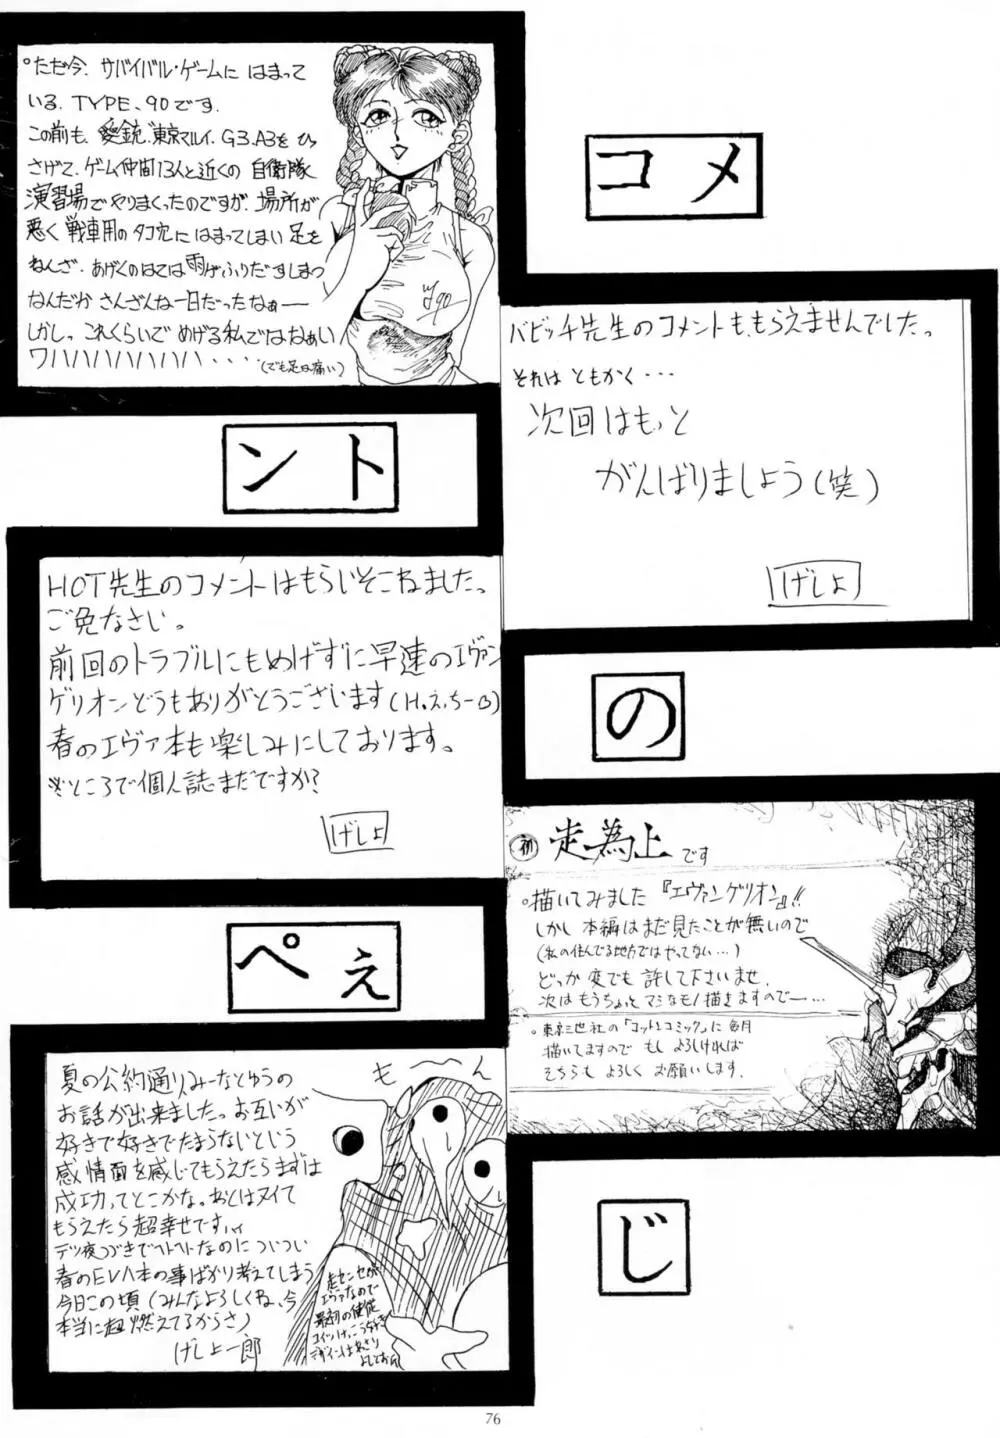 コメ
ント
の
ぺぇ
じ
°ただ今、サバイバル・ゲームに はまって
いる、TYPE、90です。
この前も、愛銃、東京マルイ、G3.A3を ひっ
さげて、ゲーム仲間13人と近くの 自衛隊
演習場でやりまくったのですが、場所が
悪く 戦車用のタコ穴に はまってしまい 足を
ねんざ、あげくのはては雨がふりだすしまつ
なんだか さんざんな一日だったなぁー
しかし、これくらいで めげる私ではなぁい
ワハハハハハハハハハ・・・・
(でも足は痛い)
バビッチ先生のコメントも、もらえませんでした。
それは ともかく・・・
次回はもっと
がんばりましょう(笑)
げしょ
HOT先生のコメントはもらいそこねました。
ご免なさい。
前回のトラブルにもめげずに早速のエヴァン
ゲリオンどうもありがとうございます
春のエヴァ本も楽しみにしております。
※ところで個人誌まだですか?
げしょ
初 走為上です
°描いてみました『エヴァンゲリオン』!!
しかし 本編はまだ見たことが無いので
(私の住んでる地方ではやってない…)
どっか変でも 許して下さいませ。
次は もうちょっと マシなもノ描きますのでー・・・
°東京三世社の「コットンコミック」に 毎月
描いてますので もし よろしければ
そちらも よろしく お願いします。
夏の公約通りみーなとゆうの
お話が出来ました。お互いが
好きで好きでたまらないという
感情面を感じてもらえたらまずは
成功ってとこかな。あとはヌイて
もらえたら超幸せですぅ
デツ夜つづきでヘトヘトなのについつい
春のEVA本の事ばかり考えてしまう
今日この頃(みんなよろしくね、今
本当に超燃えてるからさ)
げしょ一郎
も〜ん
走センセが
エヴァなので
最初の使徒
76